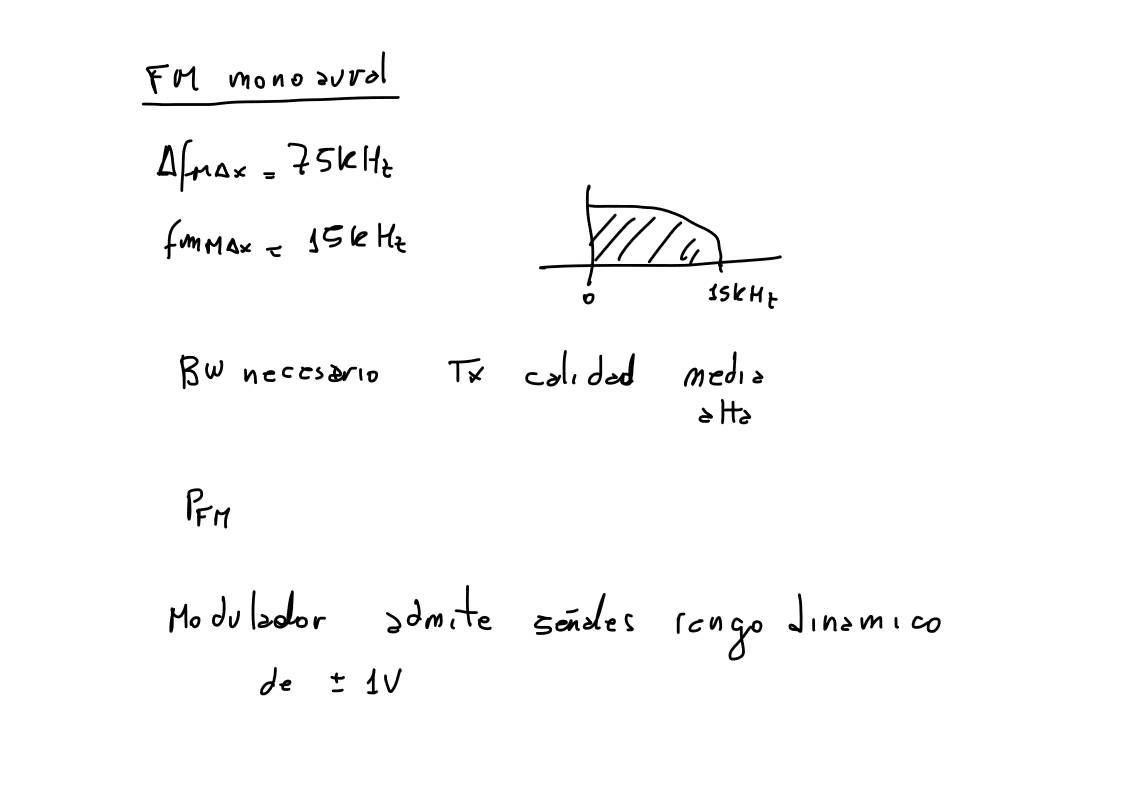 FM monoaural
ΔfMAX = 75kHz
fmMAX = 15kHz
0
15kHz
BW necesario Tx calidad media
alta
PFM
Modulador admite señales rango dinamico
de ± 1V